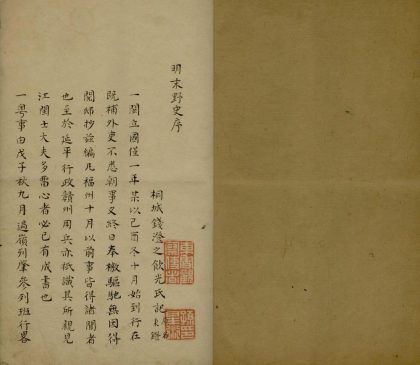 明末野史序
桐城錢澄之飲光氏記 原名秉鐙
一閩立國僅一年某以己酉冬十月始到行在
既補外吏不悉朝事又終日奉檄驅馳無因得
閱邸抄茲編凡福州十月以前事皆得諸聞者
也至於延平行政贛州用兵亦祇識其所親見
江閩士大夫多留心者必已有成書也
一粵事由戊子秋九月過嶺到肇參列班行畧